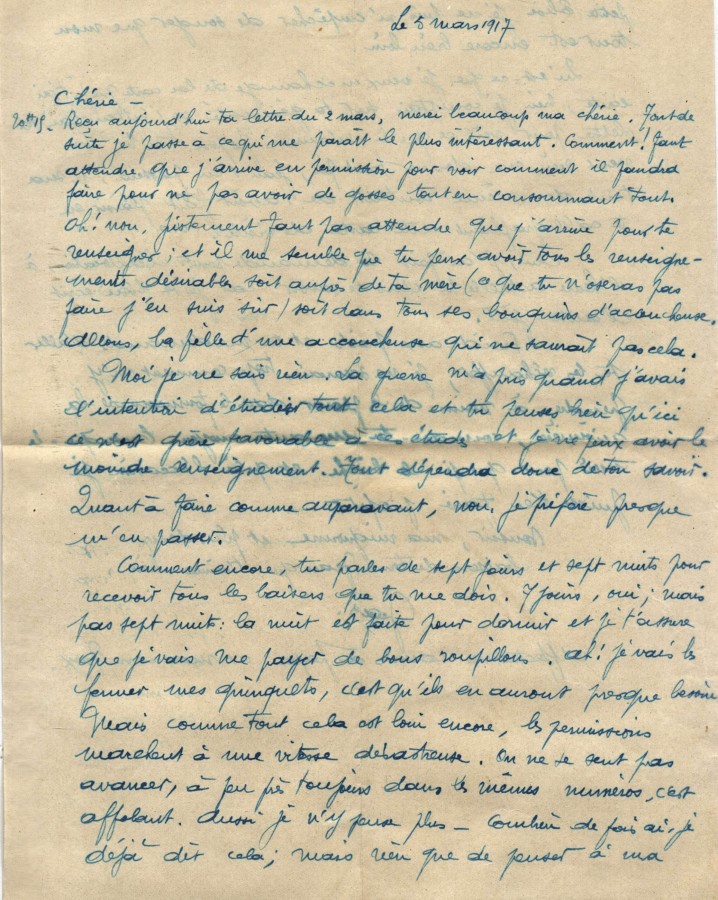 Le 5 mars 1917
Chérie –
20h15. Reçu aujourd'hui ta lettre du 2 mars, merci beaucoup ma chérie. Tout de
suite je passe à ce qui me paraît le plus intéressant. Comment! Faut
attendre que j'arrive en permission pour voir comment il faudra
faire pour ne pas avoir de gosses tout en consommant tout.
Oh! non, justement faut pas attendre que j'arrive pour te
renseigner; et il me semble que tu peux avoir tous les renseigne-
ments désirables soit auprès de ta mère (ce que tu n'oseras pas
faire j'en suis sûr) soit dans tous ses bouquins d'accoucheuse.
Allons, la fille d'une accoucheuse qui ne saurait pas cela.
Moi je ne sais rien. La guerre m'a pris quand j'avais
l'intention d'étudier tout cela et tu penses bien qu'ici
ce n'est guère favorable à ces études et je ne peux avoir le
moindre renseignement. Tout dépendra donc de ton savoir.
Quant à faire comme auparavant, non, je préfère presque
m'en passer.
Comment encore, tu parles de sept jours et sept nuits pour
recevoir tous les baisers que tu me dois. 7 jours, oui; mais
pas sept nuits: la nuit est faite pour dormir et je t'assure
que je vais me payer de bons roupillons. Ah! je vais les
fermer mes quinquets, c'est qu'ils en auront presque besoin
Mais comme tout cela est loin encore, les permissions
marchent à une vitesse désastreuse. On ne se sent pas
avancer, à peu près toujours dans les mêmes numéros, c'est
affolant. Aussi je n'y pense plus – Combien de fois ai-je
déjà dit cela; mais rien que de penser à ma